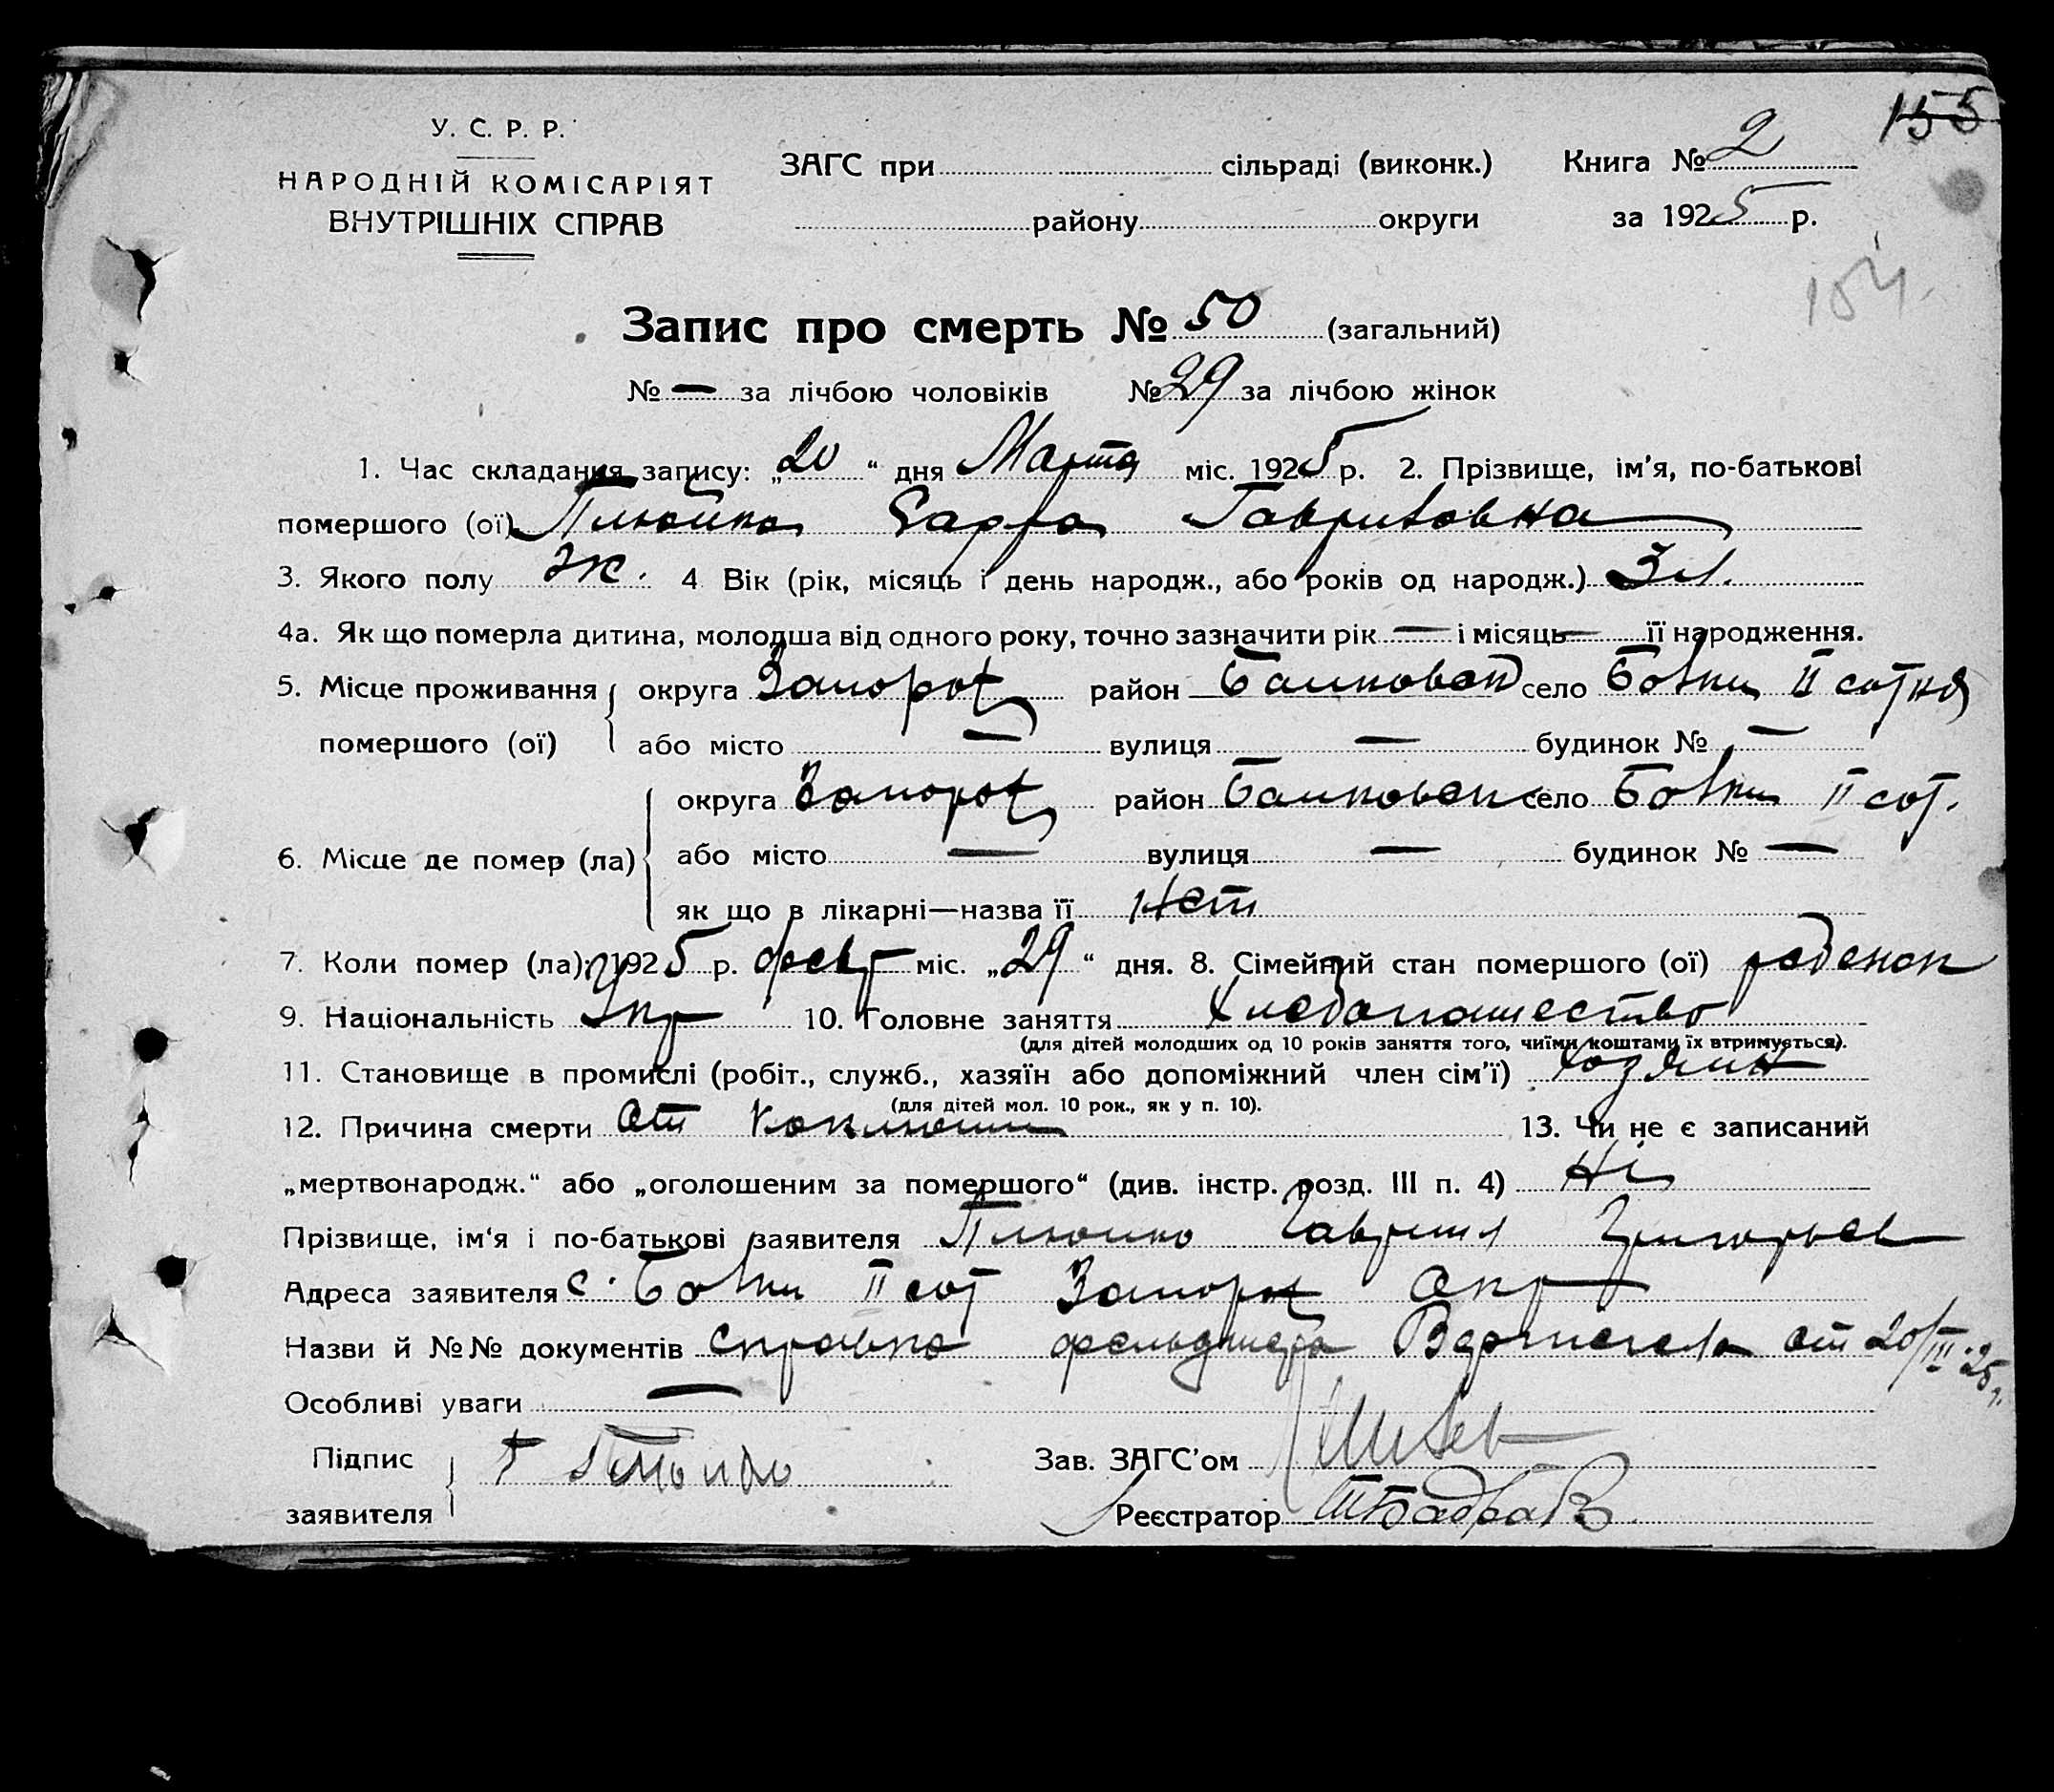 155
У. С. Р. Р.
НАРОДНІЙ КОМІСАРІЯТ
ВНУТРІШНІХ СПРАВ
ЗАГС при сільраді (виконк.) Книга № 2
району округи за 1925 р.
154.
Запис про смерть № 50 (загальний)
№ — за лічбою чоловіків № 29 за лічбою жінок
1. Час складання запису: „20“ дня Марта міс. 1925 р. 2. Прізвище, ім'я, по-батькові
помершого (ої) Гавриловна
3. Якого полу Ж. 4 Вік (рік, місяць і день народж., або років од народж.) 3 л.
4а. Як що померла дитина, молодша від одного року, точно зазначити рік — і місяць — її народження.
5. Місце проживання округа Запорож район село II сотня
помершого (ої) або місто — вулиця — будинок № —
округа Запорож район село II сот.
6. Місце де помер (ла) або місто — вулиця — будинок № —
як що в лікарні—назва її Нет
7. Коли помер (ла) 1925 р. февр міс. „29“ дня. 8. Сімейний стан помершого (ої) ребенок
9. Національність Укр 10. Головне заняття Хлебопашество
(для дітей молодших од 10 років заняття того, чиїми коштами їх втримується).
11. Становище в промислі (робіт., служб., хазяїн або допоміжний член сім'ї) хозяин
(для дітей мол. 10 рок., як у п. 10).
12. Причина смерти от коклюша 13. Чи не є записаний
„мертвонародж.“ або „оголошеним за помершого“ (див. інстр. розд. III п. 4) Ні
Прізвище, ім'я і по-батькові заявителя Гавриил Григорьев
Адреса заявителя с. II сот Запорож Окр
Назви й №№ документів справка фельдшера от 20/III-25 г.
Особливі уваги —
Підпис
заявителя
Зав. ЗАГС'ом
Реєстратор